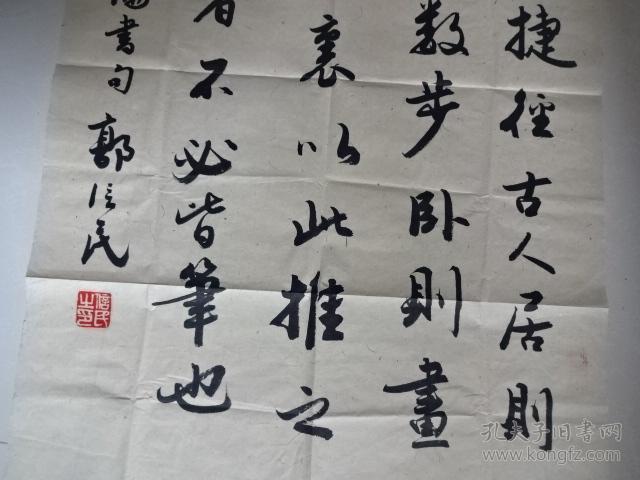 捷徑古人居則
数步卧則畫
裏以此推之
者不必皆筆也
書句 郭信民
信民之印
孔夫子旧书网
www.kongfz.com